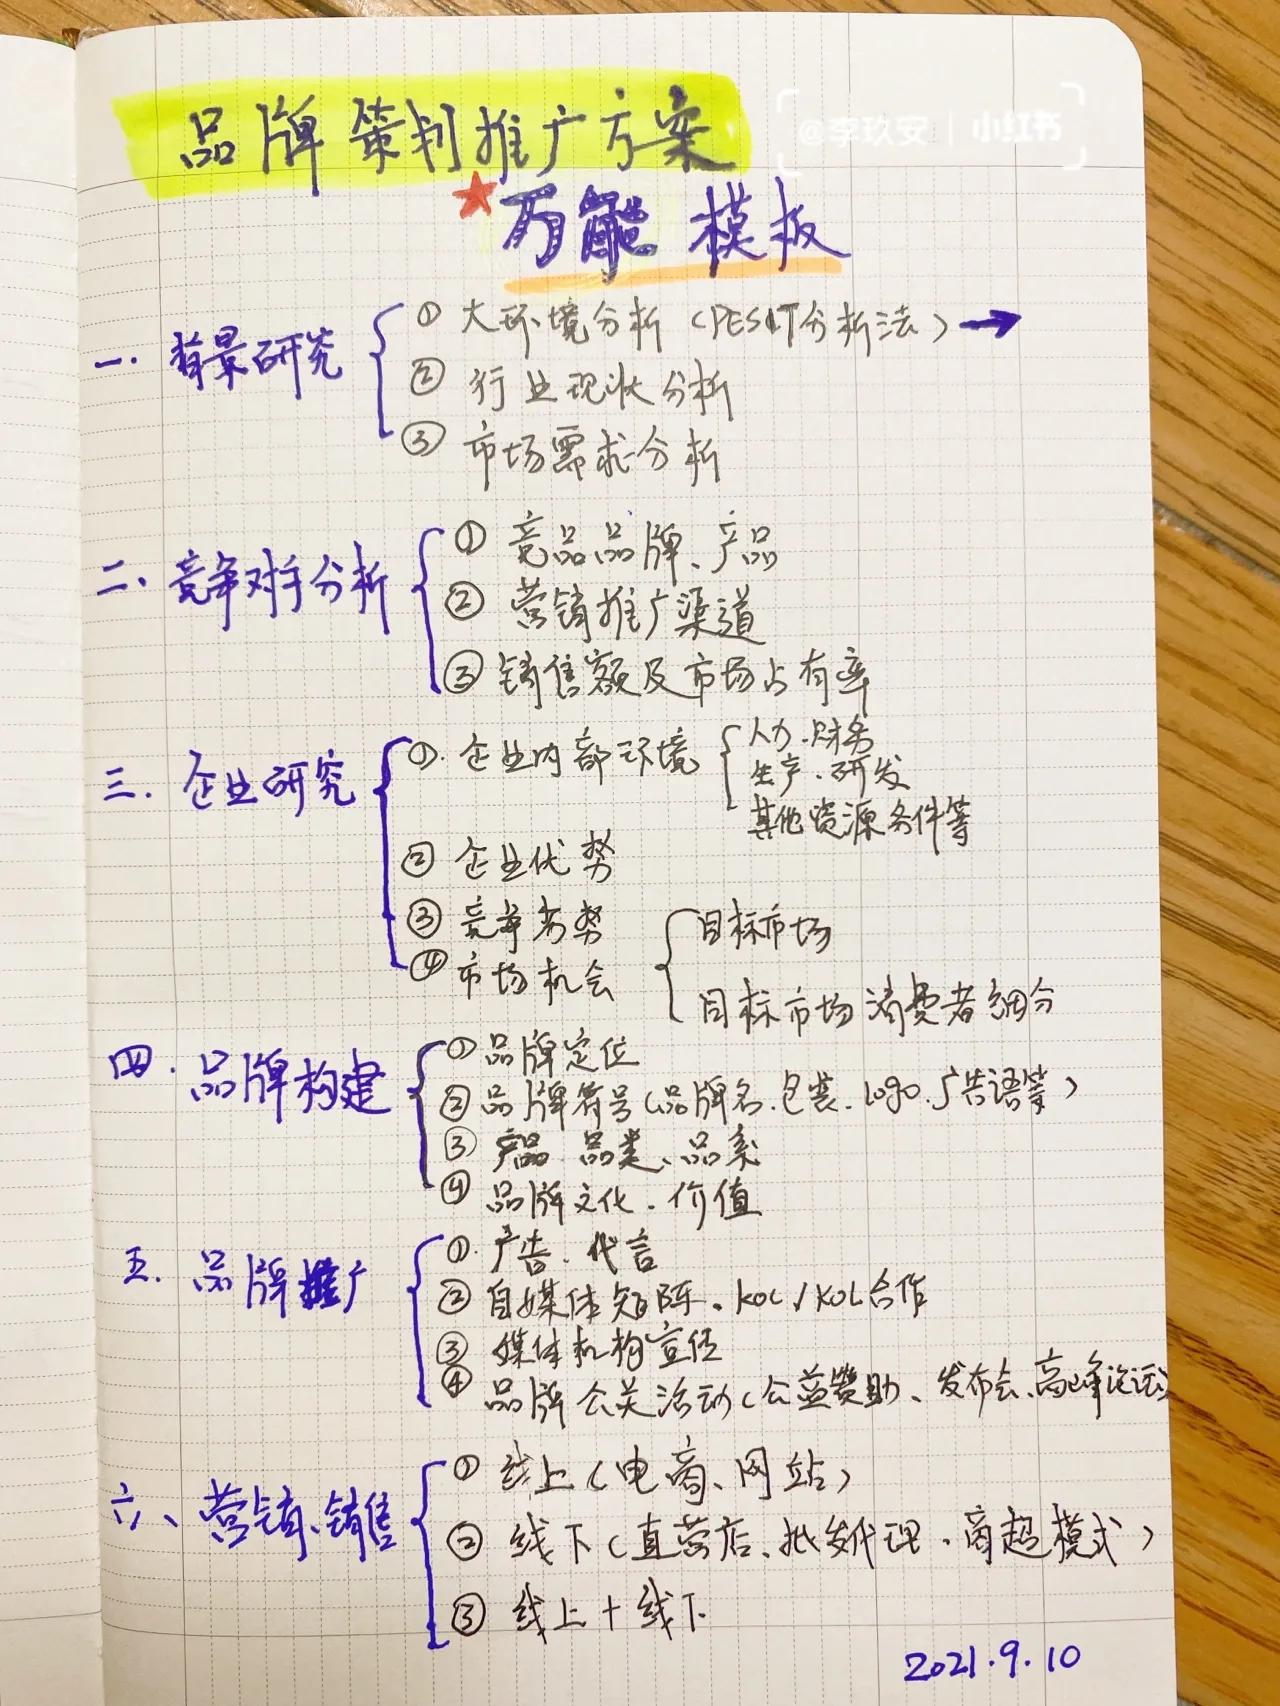 品牌策划推广方案
@李玖安 | 小红书
万能模板
一.背景研究
① 大环境分析(PEST分析法)→
② 行业现状分析
③ 市场需求分析
二、竞争对手分析
① 竞品品牌、产品
② 营销推广渠道
③ 销售额及市场占有率
三.企业研究
①.企业内部环境
人力.财务
生产.研发
其他资源条件等
② 企业优势
③ 竞争劣势
④ 市场机会
目标市场
目标市场消费者细分
四.品牌构建
① 品牌定位
② 品牌符号(品牌名.包装.logo.广告语等)
③ 产品.品类、品系
④ 品牌文化.价值
五.品牌推广
①.广告.代言
② 自媒体矩阵、KOC/KOL合作
③ 媒体机构宣传
④ 品牌公关活动(公益赞助、发布会、高峰论坛)
六、营销、销售
① 线上(电商、网站)
② 线下(直营店、批发代理、商超模式)
③ 线上+线下
2021.9.10